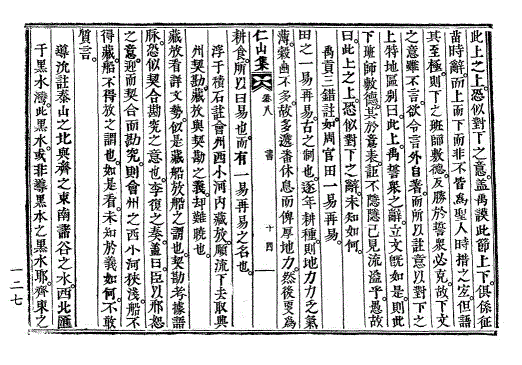 此上之上恐似對下之意蓋禹謨此節上下俱係征
苗時辭而上而下而非不皆爲聖人時措之宜但語
其至極則下之班師敷德反勝於誓衆必克故下文
之意雖不言欲令言外自著而所以註意以對下之
上特地區別曰此上禹誓衆之辭立文旣如是則此
下班師敷德其於意表詎不隱隱已見流溢乎愚故
曰此上之上恐似對下之辭未知如何
禹貢三錯註如周官田一易再易
田之一易再易古之制也逐年耕種則地力之氣
薄穀歯不多故多遞番休息而俾厚地力然後更爲
仁山集 卷八 書 十四
耕食所以曰易也而有一易再易之名也
浮于積石註會州西小河内藏放順流下去取興
州契勘藏放與契勘之義却難曉也
藏放看詳文勢似是藏船放船之謂也契勘考據語
脉恐似契合勘究之意也李復之奏蓋曰臣以邢恕
之意迎而契合而勘究則會州之西小河狹淺船不
得藏船不得放之謂也如是看未知於義如何不敢
質言
導沇註泰山之北與齊之東南諸谷之水西北匯
于黑水灣此黑水或非導黑水之黑水耶齊東之
一二七